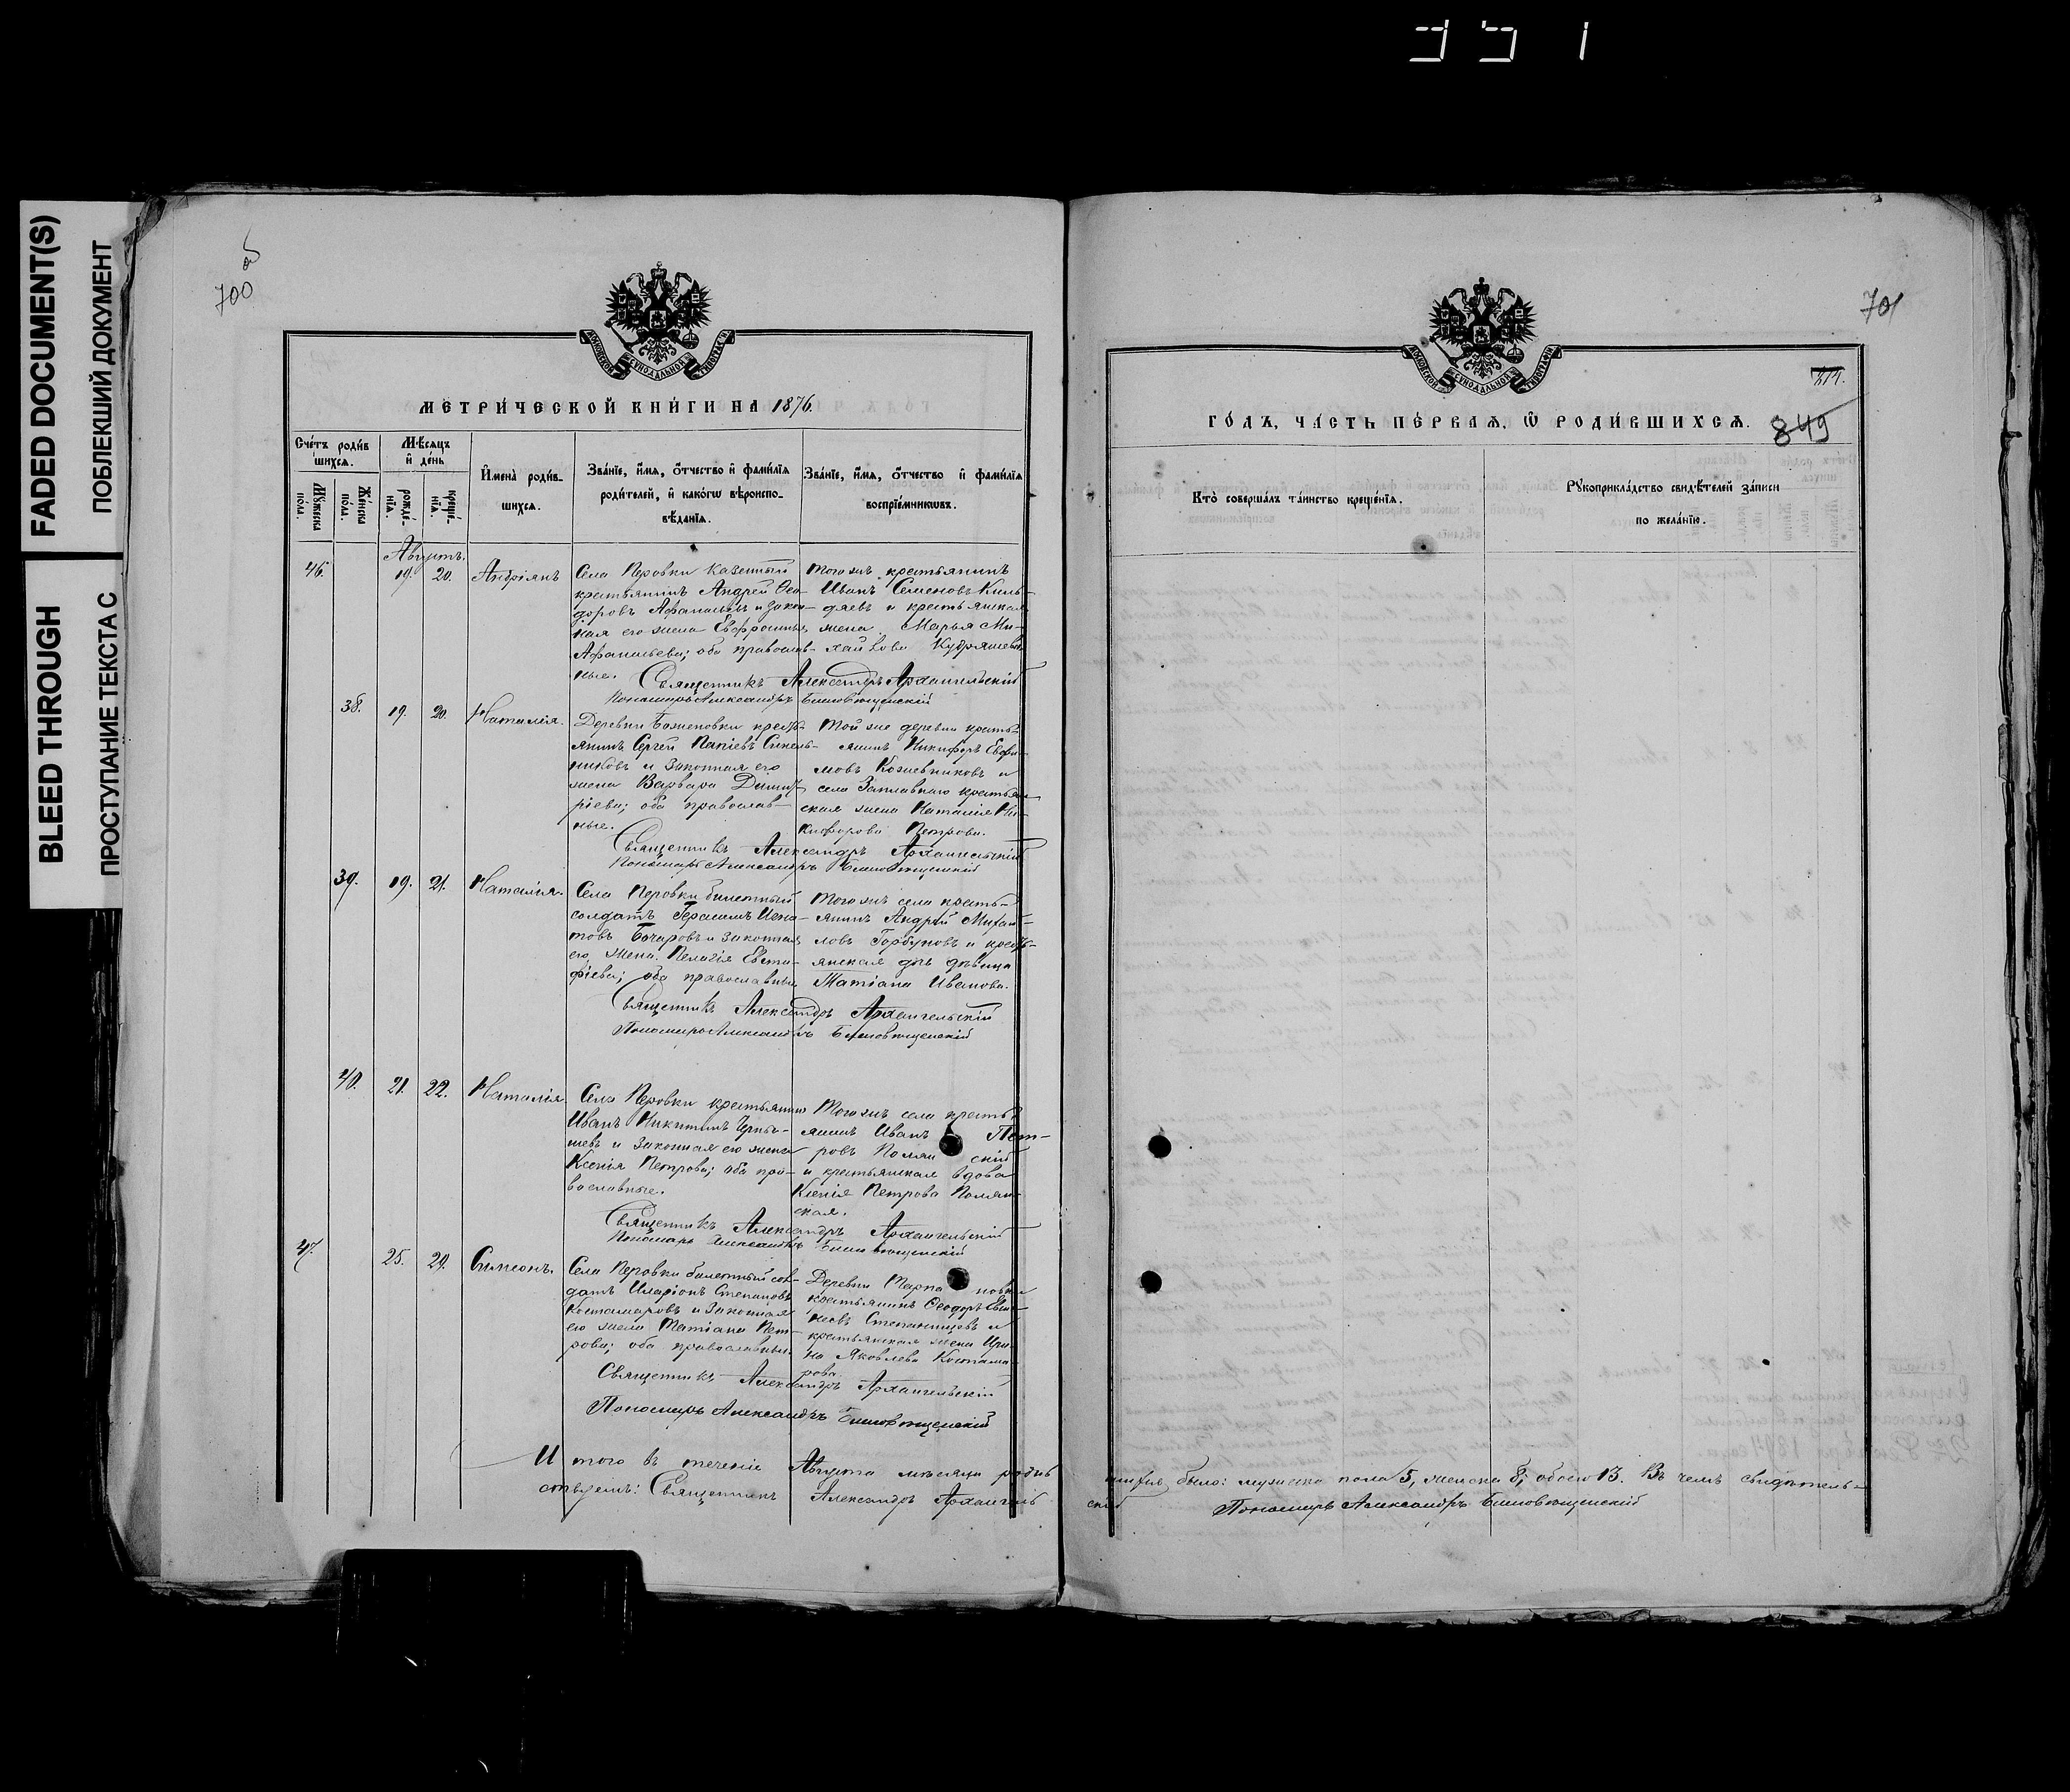 351
FADED DOCUMENT(S)
ПОБЛЕКШИЙ ДОКУМЕНТ
BLEED THROUGH
ПРОСТУПАНИЕ ТЕКСТА С
700 об
МЕТРИ́ЧЕСКОЙ КНИ́ГИ НА 1876.
Сче́тъ роди́в
шихся.
Мѣ́сяцъ
и҆ де́нь
Мꙋ́жеска пола.
Же́нска пола.
рожде́нїѧ.
креще́нїѧ.
И҆мена̀ роди́в-
шихся.
Зва́нїе, и҆́мѧ, о҆́тчество и҆ фами́лїѧ
роди́телей, и҆ како́гѡ вѣроиспо-
вѣ́данїѧ.
Зва́нїе, и҆́мѧ, о҆́тчество и҆ фами́лїѧ
воспрїе́мникѡвъ.
Августъ.
46. 19. 20. Андріянъ
Села Перовки казенный
крестьянинъ Андрей Ѳео-
доровъ Афанасьевъ и закон-
ная его жена Евфросинья
Афанасьева; оба православ-
ные.
Тогожъ крестьянинъ
Иванъ Семеновъ Киль-
дяевъ и крестьянская
жена Марья Ми-
хайлова Кудряшева
Священникъ Александръ Архангельскій
Пономарь Александръ Благовѣщенскій
38. 19. 20. Наталія.
Деревни Баженовки кресть-
янинъ Сергей Синель-
никовъ и законная его
жена Варвара Димит-
ріева; оба православ-
ные.
Той же деревни кресть-
янинъ Никифоръ Ефи-
мовъ Кожевниковъ и
села Заплавнаго крестьян-
ская жена Наталія Ни-
кифорова Петрова.
Священникъ Александръ Архангельскій
Пономарь Александръ Благовѣщенскій
39. 19. 21. Наталія.
Села Перовки билетный
солдатъ Герасимъ Игна-
товъ Бочаровъ и законная
его жена Пелагія Евста-
фіева; оба православные
Тогожъ села кресть-
янинъ Андрей Михай-
ловъ Горбуновъ и кресть-
янская дѣвица
Татіана Иванова.
Священникъ Александръ Архангельскій
Пономарь Александръ Благовѣщенскій
40. 21. 22. Наталія
Села Перовки крестьянинъ
Иванъ Никитинъ Черны-
шевъ и законная его жена
Ксенія Петрова; оба пра-
вославные.
Тогожъ села кресть-
янинъ Иванъ Пет-
ровъ Полянскій
и крестьянская вдова
Ксенія Петрова Полян-
ская.
Священникъ Александръ Архангельскій
Пономарь Александръ Благовѣщенскій
47. 25. 29. Симеонъ.
Села Перовки билетный сол-
датъ Иларіонъ Степановъ
Костамаровъ и законная
его жена Татіана Пет-
рова; оба православные.
Деревни
крестьянинъ Ѳеодоръ
Степанищевъ и
крестьянская жена Ири-
на Яковлева Костама-
рова.
Священникъ Александръ Архангельскій
Пономарь Александръ Благовѣщенскій
Итого въ теченіе Августа мѣсяца родив
ствуемъ: Священникъ Александръ Архангель
701
849
ГО́ДЪ, ЧА́СТЬ ПЕ́РВАѦ, Ѡ҆ РОДИ́ВШИХСѦ.
Кто̀ соверша́лъ та́инство креще́нїѧ.
Рꙋкоприкла́дство свидѣ́телей за́писи
по жела́нїю.
шихся было: мужеска пола 5, женска 8, обоего 13. Въ чемъ свидѣтель-
скій Пономарь Александръ Благовѣщенскій